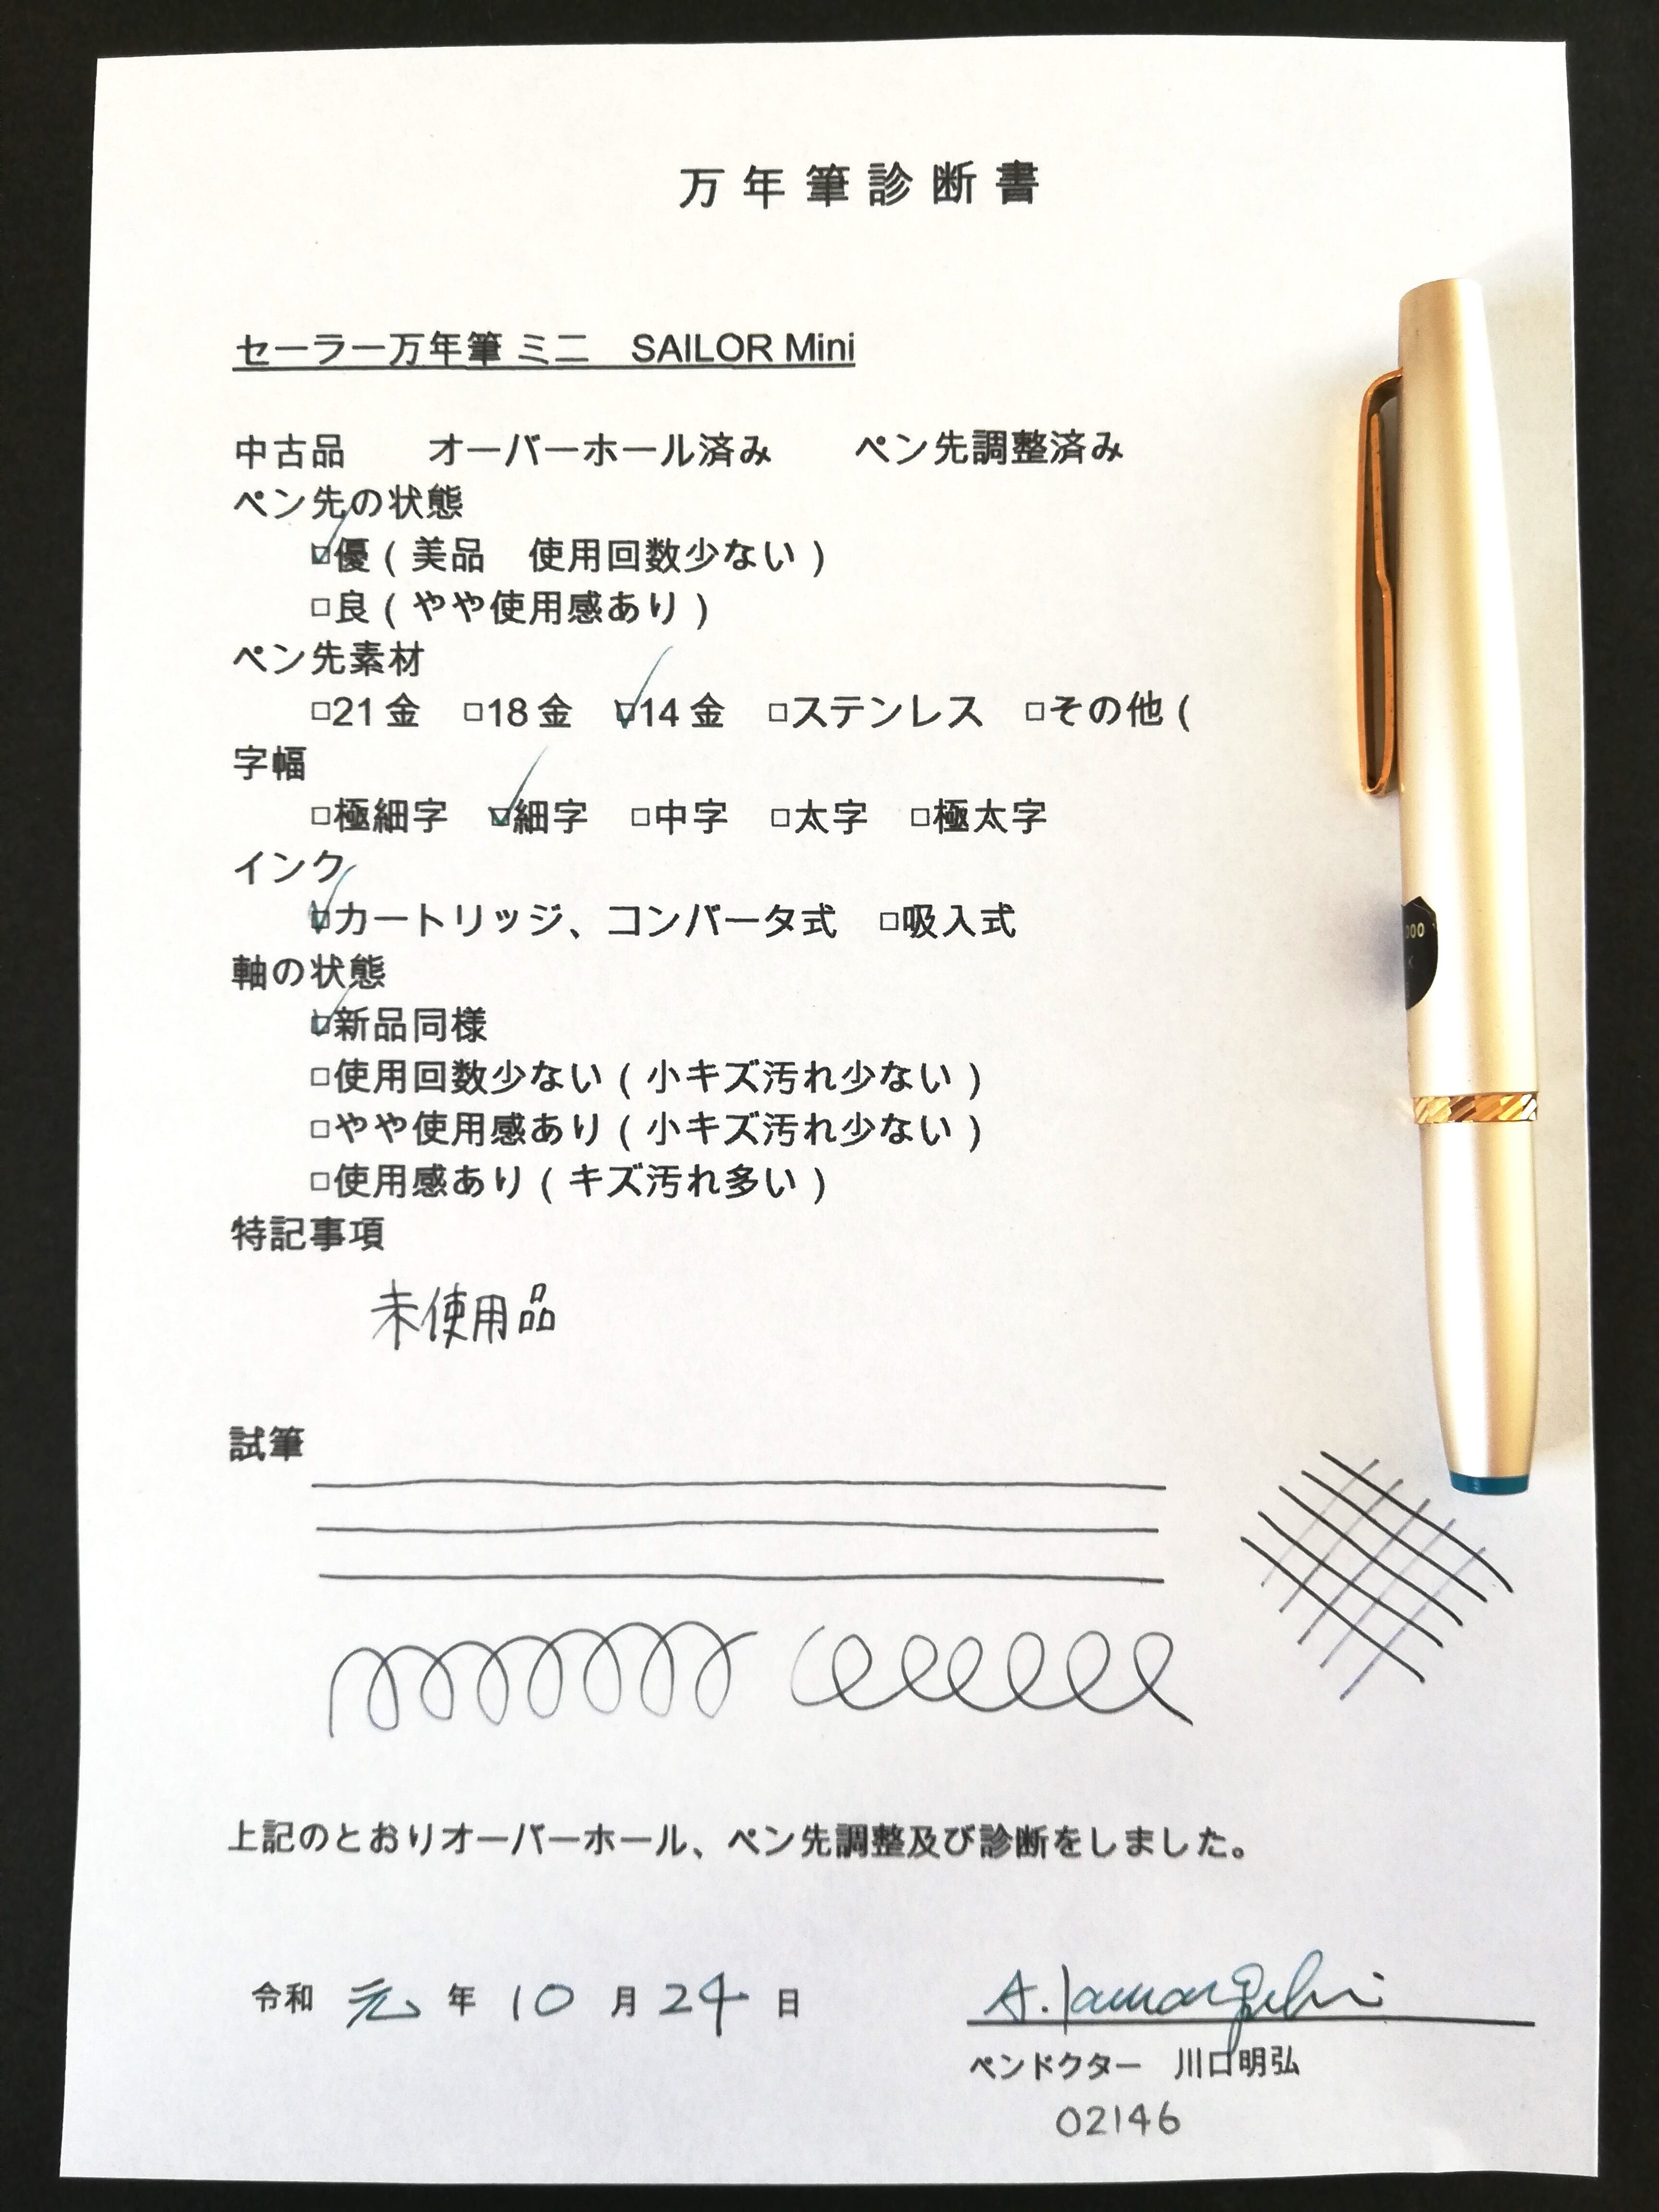 万年筆診断書
セーラー万年筆 ミニ　SAILOR Mini
中古品　　オーバーホール済み　　ペン先調整済み
ペン先の状態
☑優（美品　使用回数少ない）
□良（やや使用感あり）
ペン先素材
□21金　□18金　☑14金　□ステンレス　□その他（
字幅
□極細字　☑細字　□中字　□太字　□極太字
インク
☑カートリッジ、コンバータ式　□吸入式
軸の状態
☑新品同様
□使用回数少ない（小キズ汚れ少ない）
□やや使用感あり（小キズ汚れ少ない）
□使用感あり（キズ汚れ多い）
特記事項
未使用品
試筆
上記のとおりオーバーホール、ペン先調整及び診断をしました。
令和 元 年 10 月 24 日
ペンドクター　川口明弘
02146
000
K